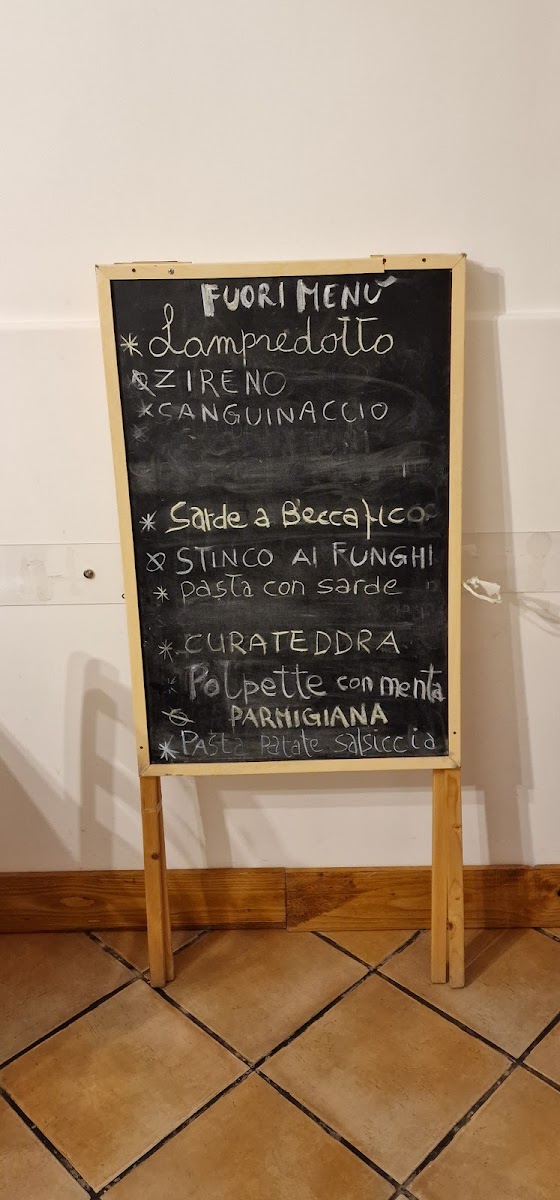 FUORI MENÙ
* Lampredotto
ZIRENO
* SANGUINACCIO
*
* Sarde a Beccafico
STINCO AI FUNGHI
* pasta con sarde
* CURATEDDRA
* Polpette con menta
PARMIGIANA
* PASTA PATATE SALSICCIA